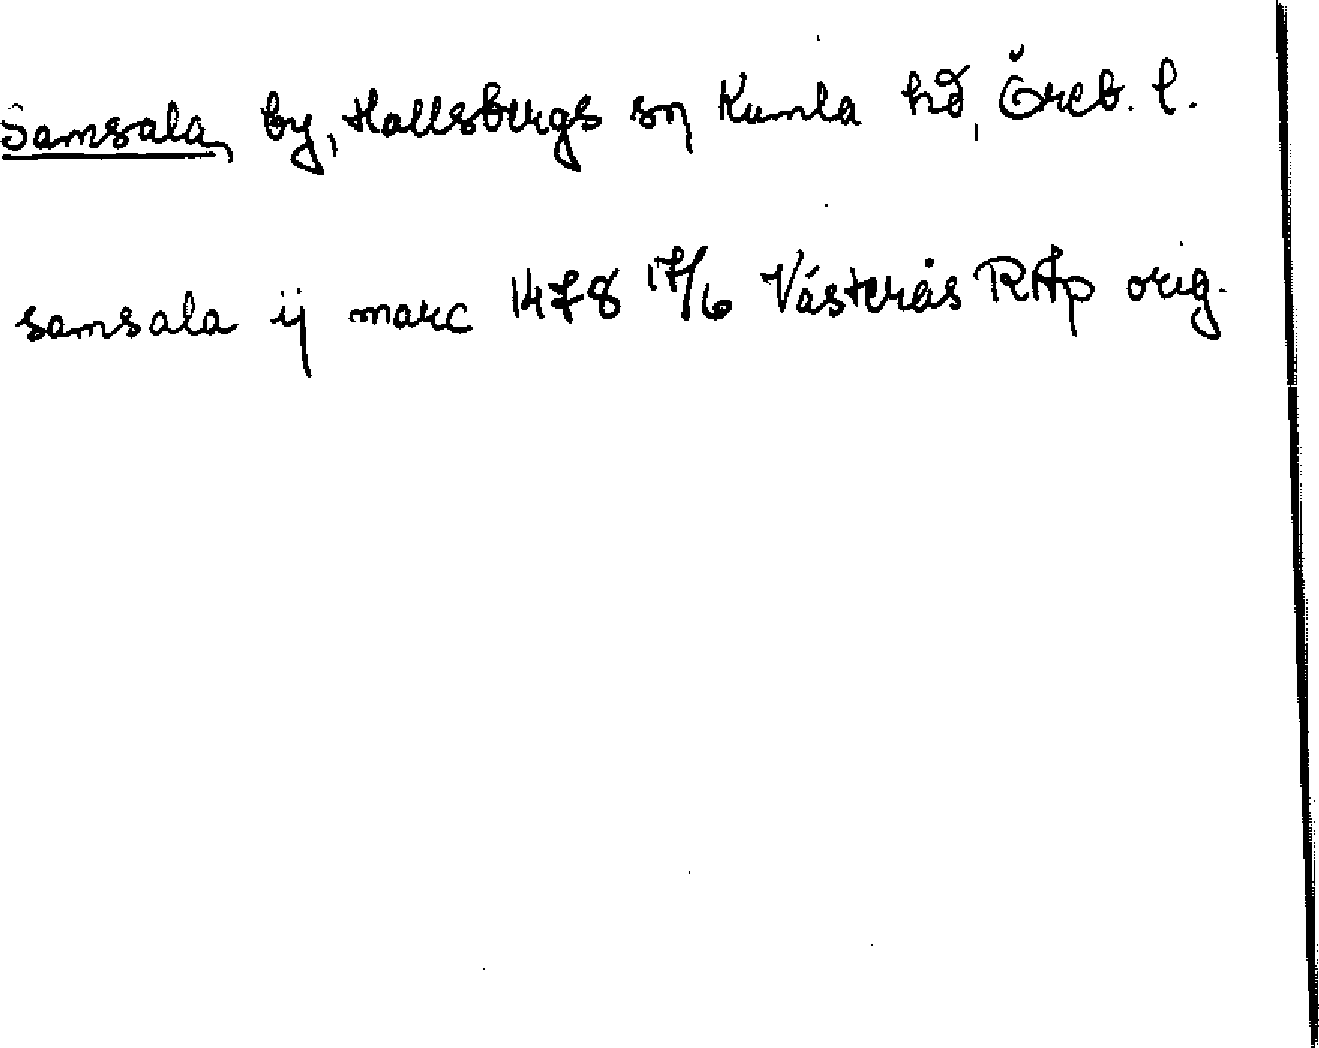 Samsala, by, Hallsbergs sn, Kumla hd, Öreb. l.
samsala ij marc 1478 17/6 Västerås RAp orig.